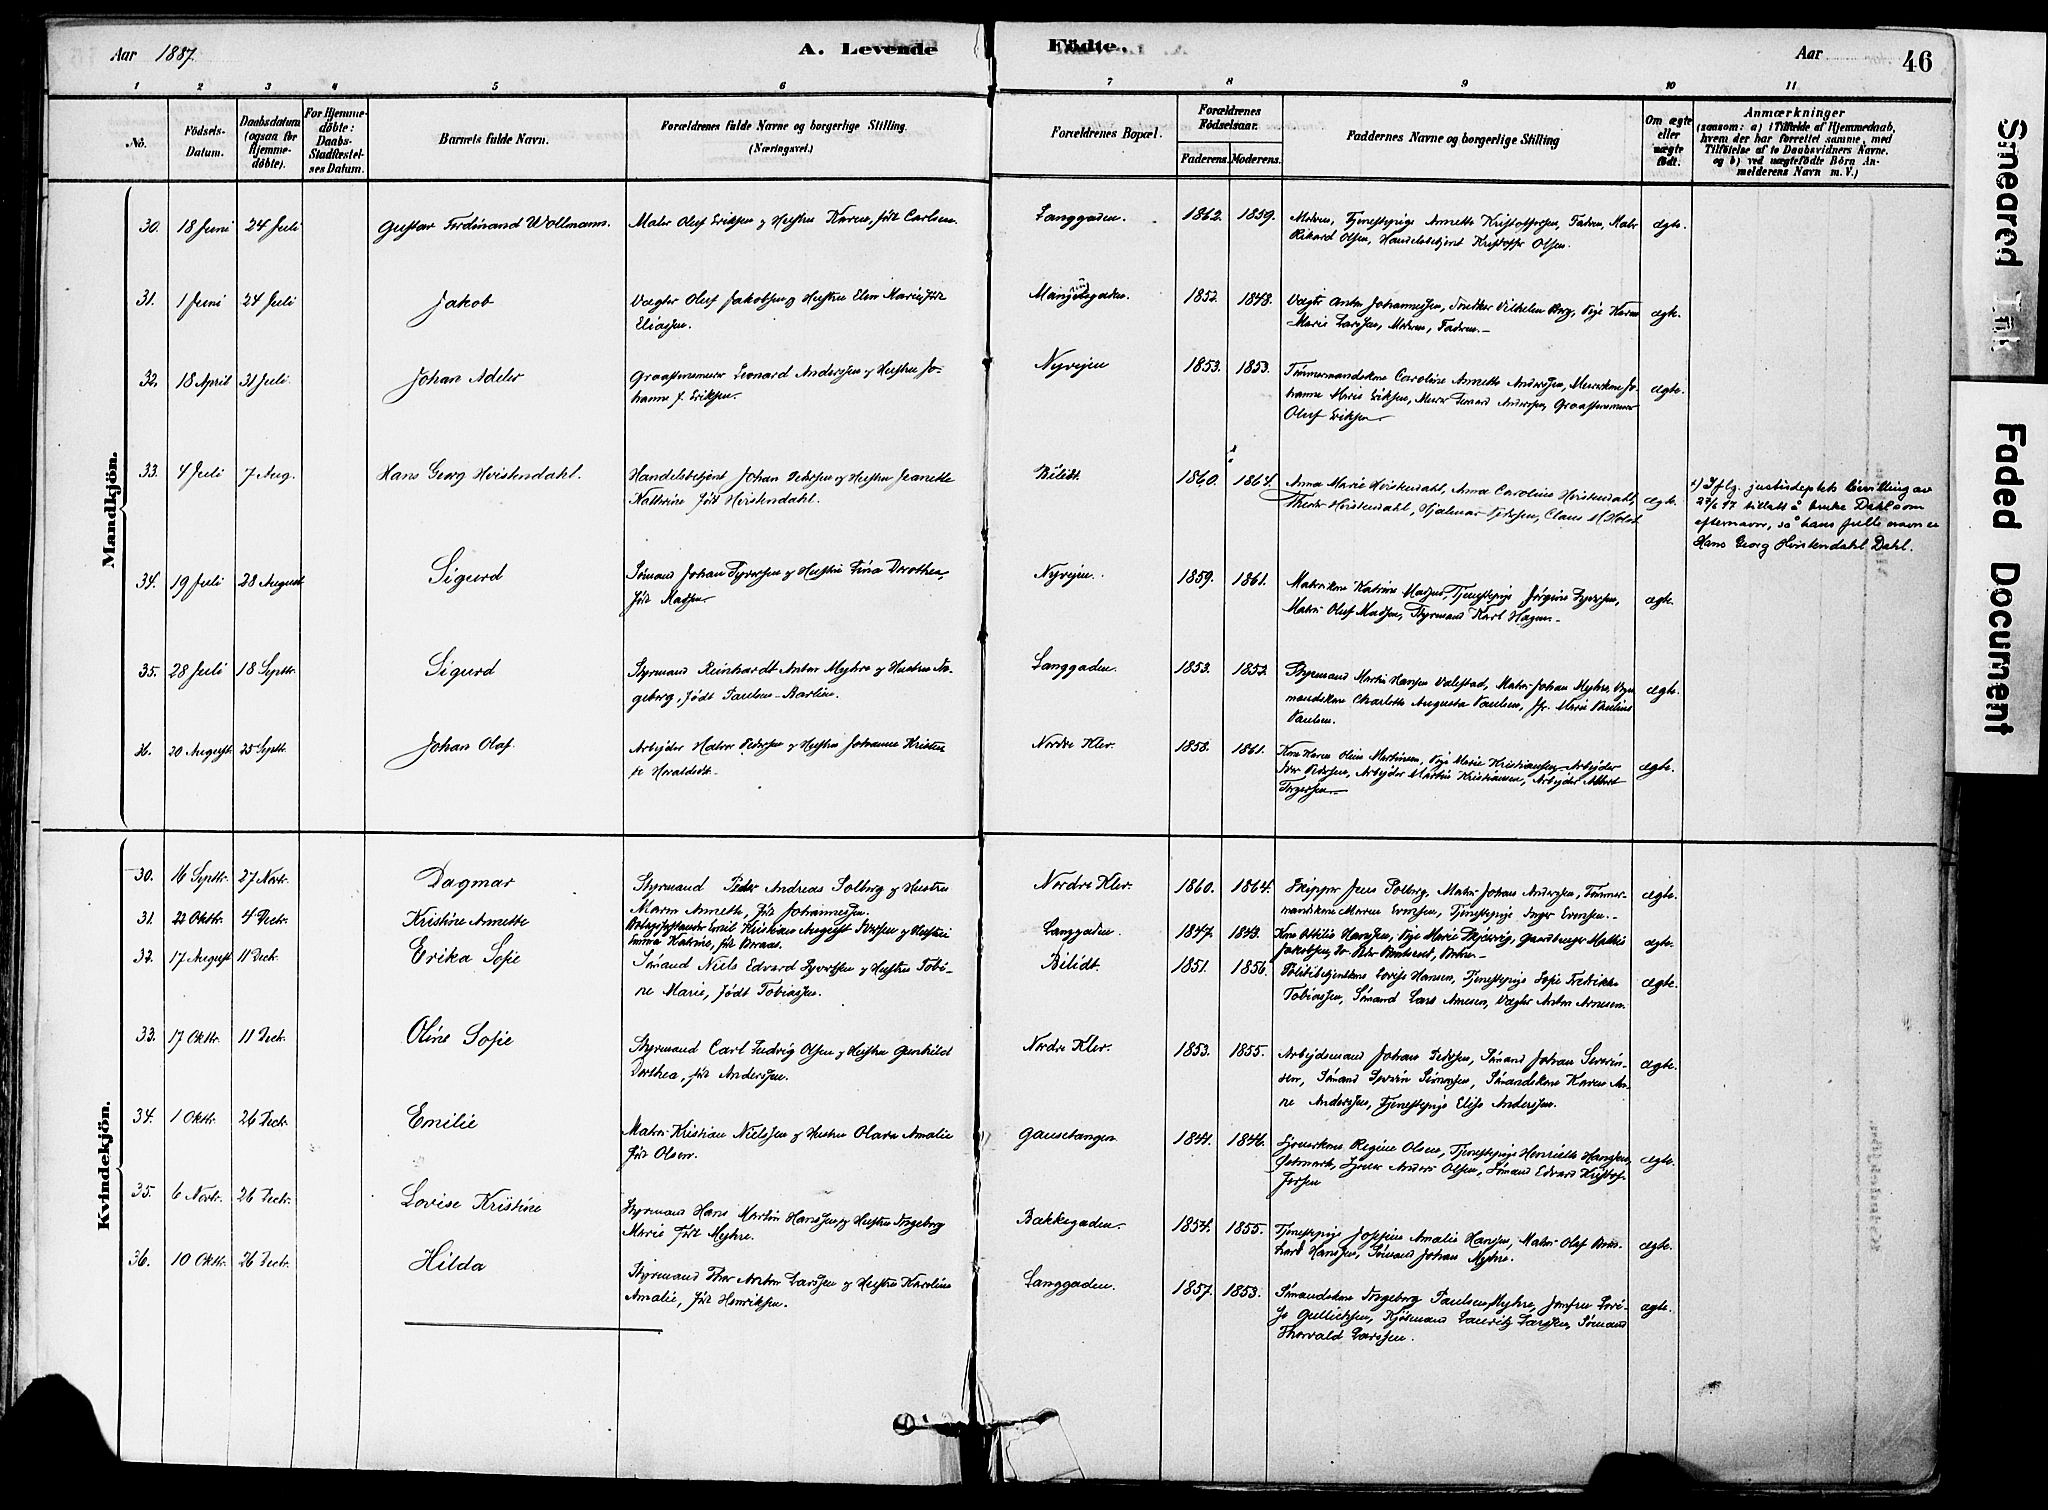 Aar 1887.
A. Levende
Födte.
Aar
46
1 2 3 4 5 6 7 8 9 10 11
No.
Födsels-
Datum.
Daabsdatum
(ogsaa for
Hjemme-
döbte).
For Hjemme-
döbte:
Daabs-
Stadfæstel-
ses Datum.
Barnets fulde Navn.
Forældrenes fulde Navne og borgerlige Stilling.
(Næringsvei.)
Forældrenes Bopæl.
Forældrenes
Födselsaar.
Faderens. Moderens.
Faddernes Navne og borgerlige Stilling
Om ægte
eller
uægte
födt.
Anmærkninger
(saasom: a) i Tilfælde af Hjemmedaab,
hvem der har forrettet samme, med
Tilföielse af to Daabsvidners Navne,
og b) ved uægtefödte Börn An-
melderens Navn m. V.)
Mandkjön.
30. 18 Juni 24 Juli Gustav Ferdinand Wollmann. Matr. Oluf Eriksen og Hustru Karen, født Carlsen. Langgaden. 1862. 1859. Moderen, Tjenestepige Annette Kristoffersen, Faderen, Matr.
Rikard Olsen, Handelsbetjent Kristoffer Olsen. ægte.
31. 1 Juni 24 Juli Jakob Vægter Oluf Jakobsen og Hustru Elen Marie født
Eliassen. 1852. 1848. Vægter Anton Johannessen, Snedker Vilhelm Berg, Pige Karen
Marie Larssen, Moderen, Faderen.- ægte.
32. 18 April 31 Juli Johan Adeler Graastensmurer Leonard Anderssen og Hustru Jo-
hanne f. Eriksen. Nyvejen 1853. 1853. Tømmermandskone Caroline Annette Anderssen, Murerkone Jo-
hanne Marie Eriksen, Murer Leonard Anderssen, Graastensmurer
Oluf Eriksen. ægte.
33. 4 Juli 7 Aug. Hans Georg Hvistendahl. Handelsbetjent Johan Pedersen og Hustru Jeanette
Kathrine født Hvistendahl. Bilidt. 1860. 1864. Anna Marie Hvistendahl, Anna Caroline Hvistendahl,
Theodor Hvistendahl, Hjalmar Pedersen, Claus M Holst ægte.
x) Iflg. justisdeptets bevilling av
27/6 17 tillatt å bruke Dahl som
efternavn, så hans fulle navn er
Hans Georg Hvistendahl Dahl.
34. 19 Juli 28 August Sigurd Sømand Johan Syversen og Hustru Tina Dorothea,
født Madsen. Nyvejen. 1859. 1861. Matroskone Katrine Madsen, Tjenestepige Jørgine Syversen,
Matros Oluf Madsen, Styrmand Karl Hagen.- ægte.
35. 28 Juli 18 Septbr. Sigurd Styrmand Reinhardt Anton Myhre og Hustru In-
geborg, født Paulsen-Barlien. Langgaden. 1853. 1852. Styrmand Martin Hansen Valestad, Matros Johan Myhre, Styr-
mandskone Charlotte Augusta Paulsen, Jfr. Marie Pauline
Paulsen. ægte.
36. 20 August 25 Septbr. Johan Olaf. Arbejder Halvor Pedersen og Hustru Johanne Kristen-
se Haraldsdt. Nordre Klev. 1858. 1861. Kone Karen Oline Martinsen, Pige Marie Kristiansen, Arbejder
Peder Pedersen, Arbejder Martin Kristiansen, Arbejder Albert
Torgersen. ægte.
Kvindekjön.
30. 16 Septbr. 27 Novbr. Dagmar Styrmand Peder Andreas Solberg og Hustru
Maren Annette, født Johannessen. Nordre Klev. 1860. 1864. Skipper Jens Solberg, Matros Johan Anderssen, Tømmer-
mandskone Maren Evensen, Tjenestepige Inger Evensen.- ægte.
31. 22 Oktbr. 4 Decbr. Kristine Annette Emil Kristian August Iversen og Hustru
Emma Katrine, født Braas. Langgaden. 1847. 1843. Kone Ottilie Hanssen, Pige Marie Skjervig, Gaardbruger Mathis
Jakobsen, ægte.
32. 17 August 11 Decbr. Erika Sofie Sømand Niels Edvard Syverssen og Hustru Tobi-
ne Marie, født Tobiassen. Bilidt. 1851. 1856. Politibetjentkone Lovise Hansen, Tjenestepige Sofie Fredrikke
Tobiassen, Sømand Lars Arnesen, Vægter Anton Arnesen. ægte.
33. 17 Oktbr. 11 Decbr. Oline Sofie Styrmand Carl Ludvig Olsen og Hustru Gunhild
Dorthea, født Anderssen. Nordre Klev. 1853. 1855. Arbejdsmand Johan Pedersen, Sømand Johan Severin-
sen, Sømand Severin Simonsen, Sømandskone Karen An-
ne Anderssen, Tjenestepige Elise Anderssen. ægte.
34. 1 Oktbr. 26 Decbr. Emilie Matros Kristian Nielssen og Hustru Olava Amalie
født Olsen. Gausetangen 1844. 1846. Regine Olsen, Tjenestepige Henriette Hanssen,
Anders Olsen, Sømand Edvard Kristof-
fersen ægte.
35. 6 Novbr. 26 Decbr. Lovise Kristine Styrmand Hans Martin Hanssen og Hustru Ingeborg
Marie født Myhre. Bakkegaden. 1854. 1855. Tjenestepige Josefine Amalie Hanssen, Matros Olaf
Hanssen, Sømand Johan Myhre. ægte.
36. 10 Oktbr. 26 Decbr. Hilda Styrmand Thor Anton Larssen og Hustru Karoline
Amalie, født Henriksen. Langgaden. 1857. 1853. Sømandskone Ingeborg Paulsen Myhre, Jomfru Lovi-
se Gullichsen, Kjøbmand Lauritz Larssen, Sømand
Thorvald Larssen. ægte.
Smeared Ink
Faded Document